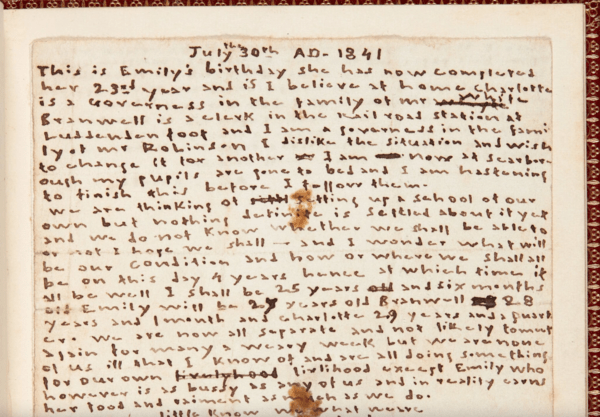 July the 30th AD - 1841
This is Emily's birthday she has now completed
her 23rd year and is I believe at home Charlotte
is a Governess in the family of mr White
Branwell is a clerk in the rail road station at
Luddenden foot and I am a governess in the fami-
ly of mr Robinson I dislike the situation and wish
to change it for another I am now at scarbor-
ough my pupils are gone to bed and I am hastening
to finish this before I follow them.
we are thinking of setting up a school of our
own but nothing definite is settled about it yet
and we do not know whether we shall be able to
or not I hope we shall - and I wonder what will
be our condition and how or where we shall all
be on this day 4 years hence at which time if
all be well I shall be 25 years and six months
old Emily will be 27 years old Branwell 28
years and 1 month and charlotte 29 years and a quart
er. we are now all separate and not likely to meet
again for many a weary week but we are none
of us ill that I know of and are all doing something
for our own livelyhood livlihood except Emily who
however is as bussy as any of us and in reality earns
her food and raiment as much as we do.
little know we what we are